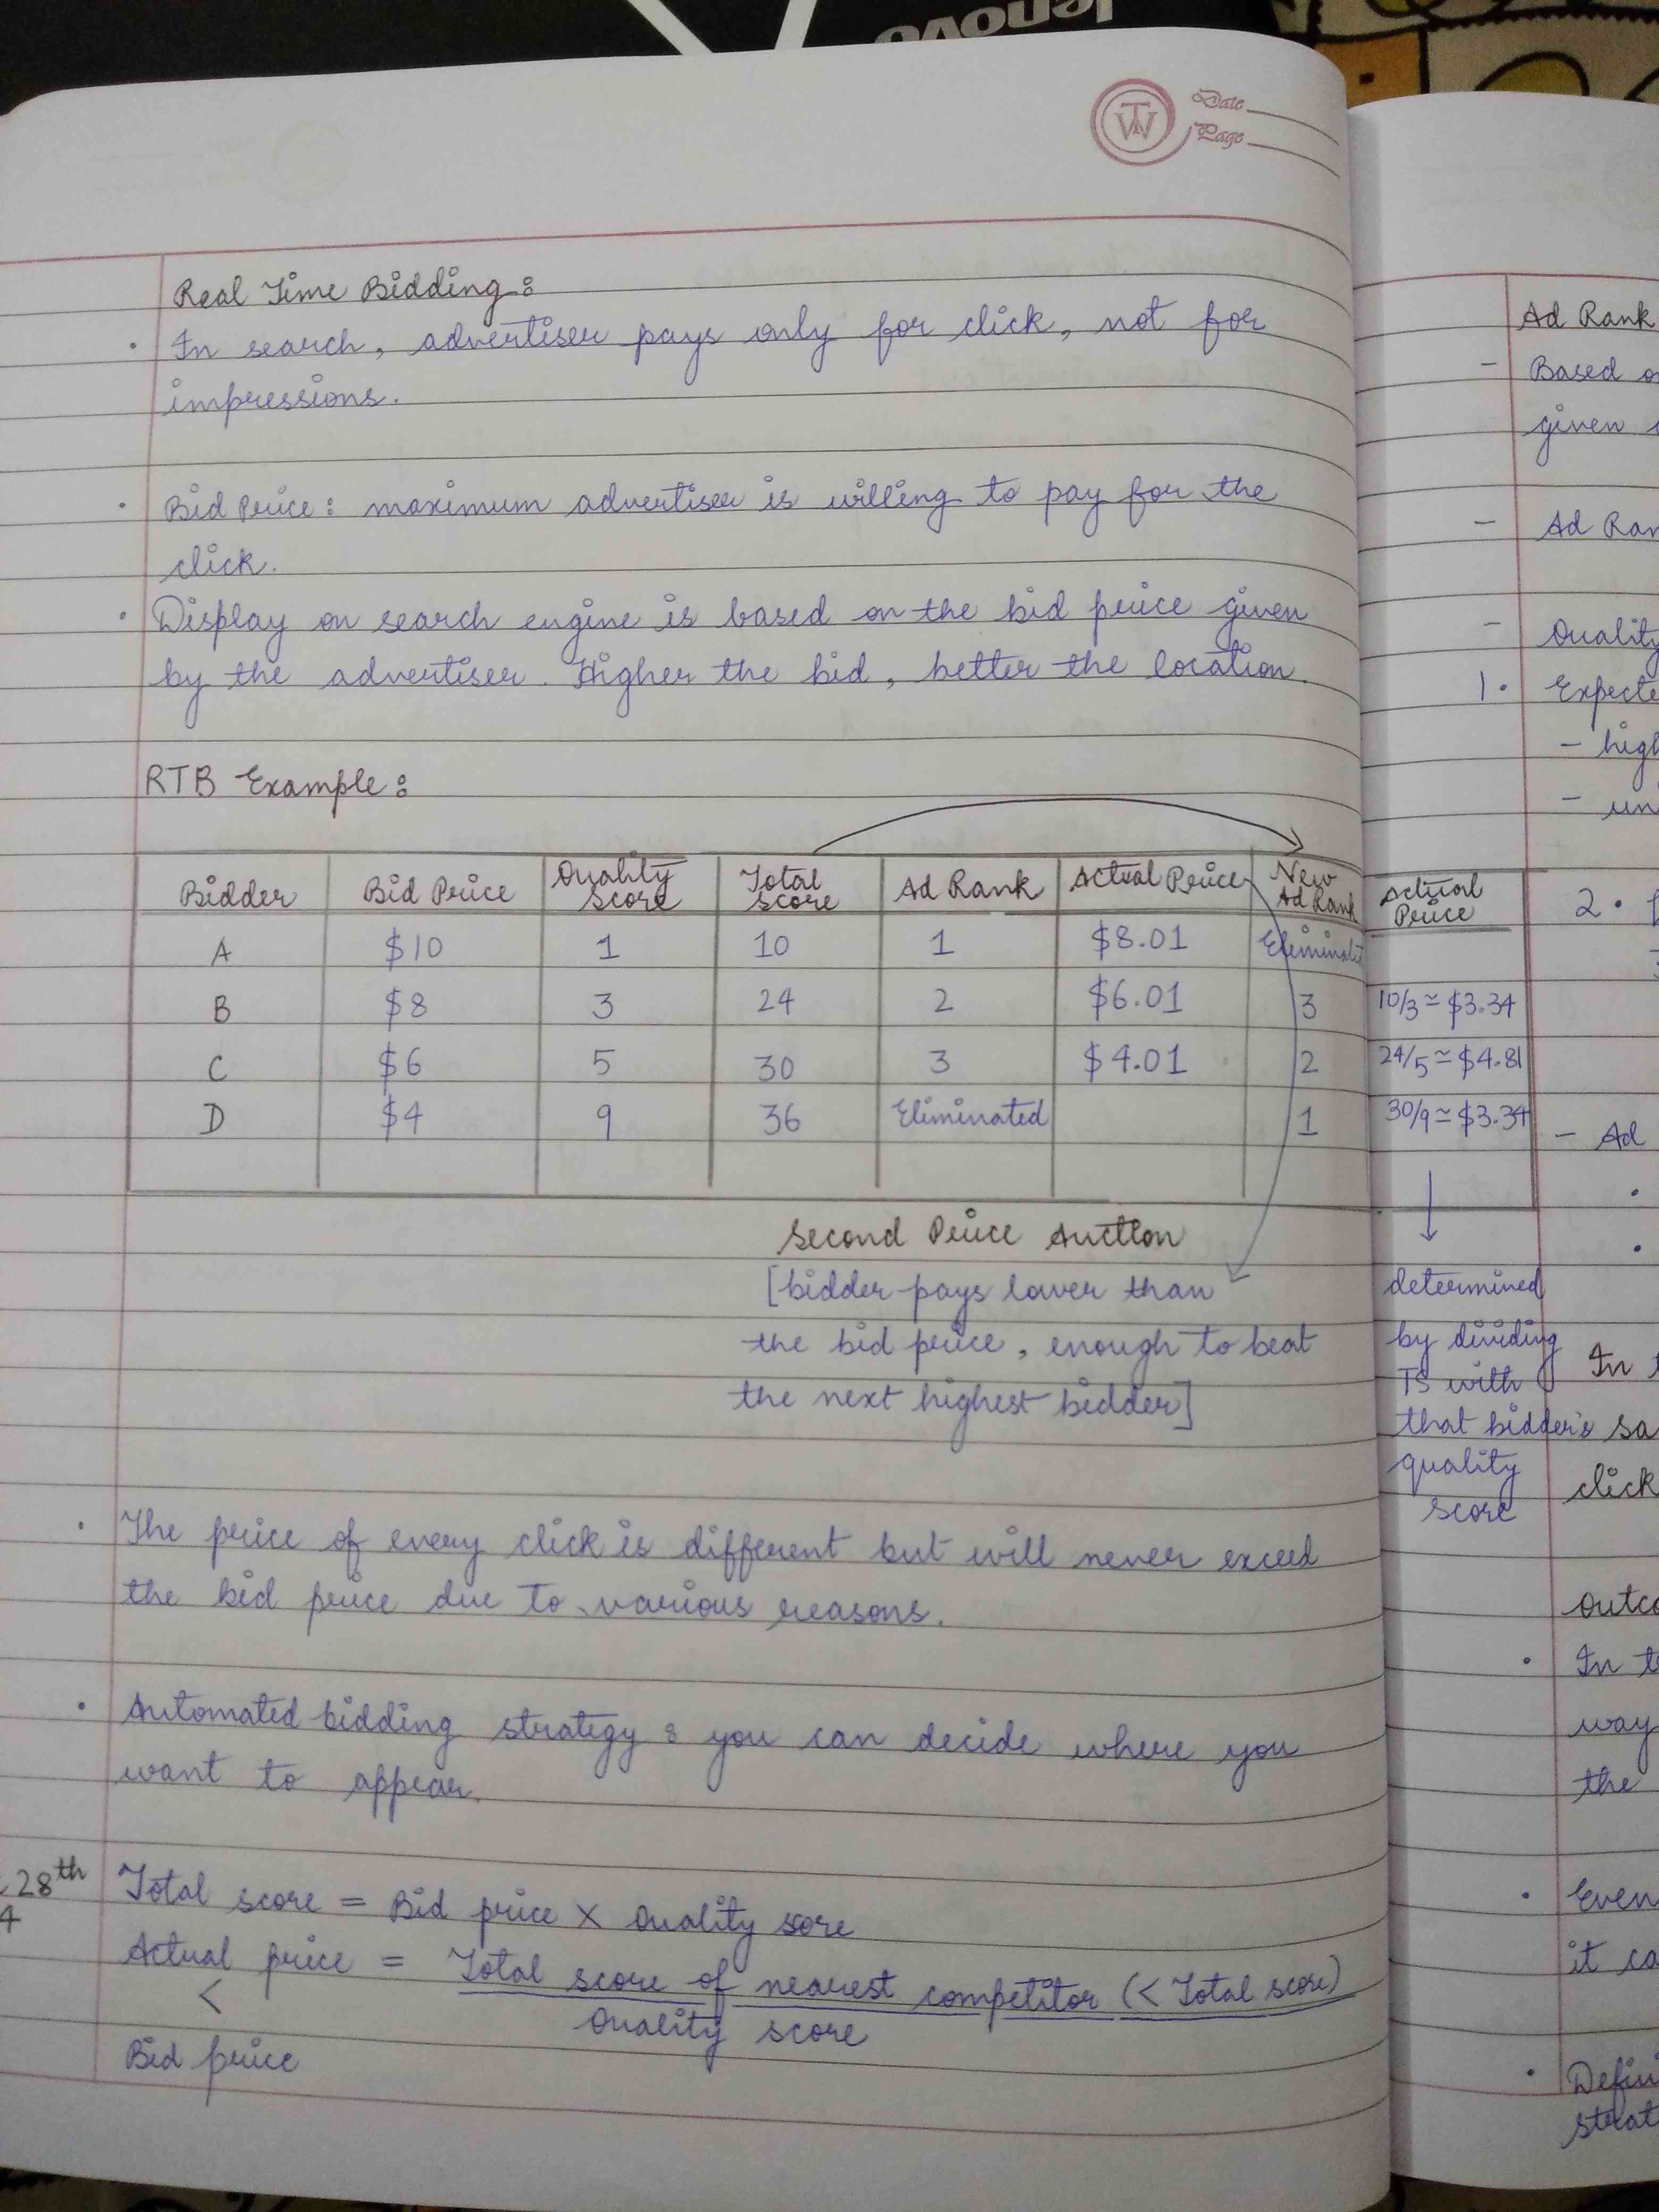 lenovo
TW
Date
Page
Real Time Bidding:
• In search, advertiser pays only for click, not for
impressions.
• Bid Price: maximum advertiser is willing to pay for the
click.
• Display on search engine is based on the bid price given
by the advertiser. Higher the bid, better the location.
RTB Example:
Bidder Bid Price Quality Score Total Score Ad Rank Actual Price New Ad Rank Actual Price
A $10 1 10 1 $8.01
B $8 3 24 2 $6.01 3 10/3 ≃ $3.34
C $6 5 30 3 $4.01 2 24/5 ≃ $4.81
D $4 9 36 Eliminated 1 30/9 ≃ $3.34
Second Price Auction
[bidder pays lower than
the bid price, enough to beat
the next highest bidder]
determined
by dividing
TS with
that bidder's
quality
score
• The price of every click is different but will never exceed
the bid price due to various reasons.
• Automated bidding strategy : you can decide where you
want to appear.
28th
4
Total score = Bid price × Quality sore
Actual price = Total score of nearest competitor (< Total score)
< Quality score
Bid price
Ad Rank
– Based
given
–
Ad
– Quality
1.
–
–
2.
– Ad
•
•
In
click
• In
way
the
• Even
it
•